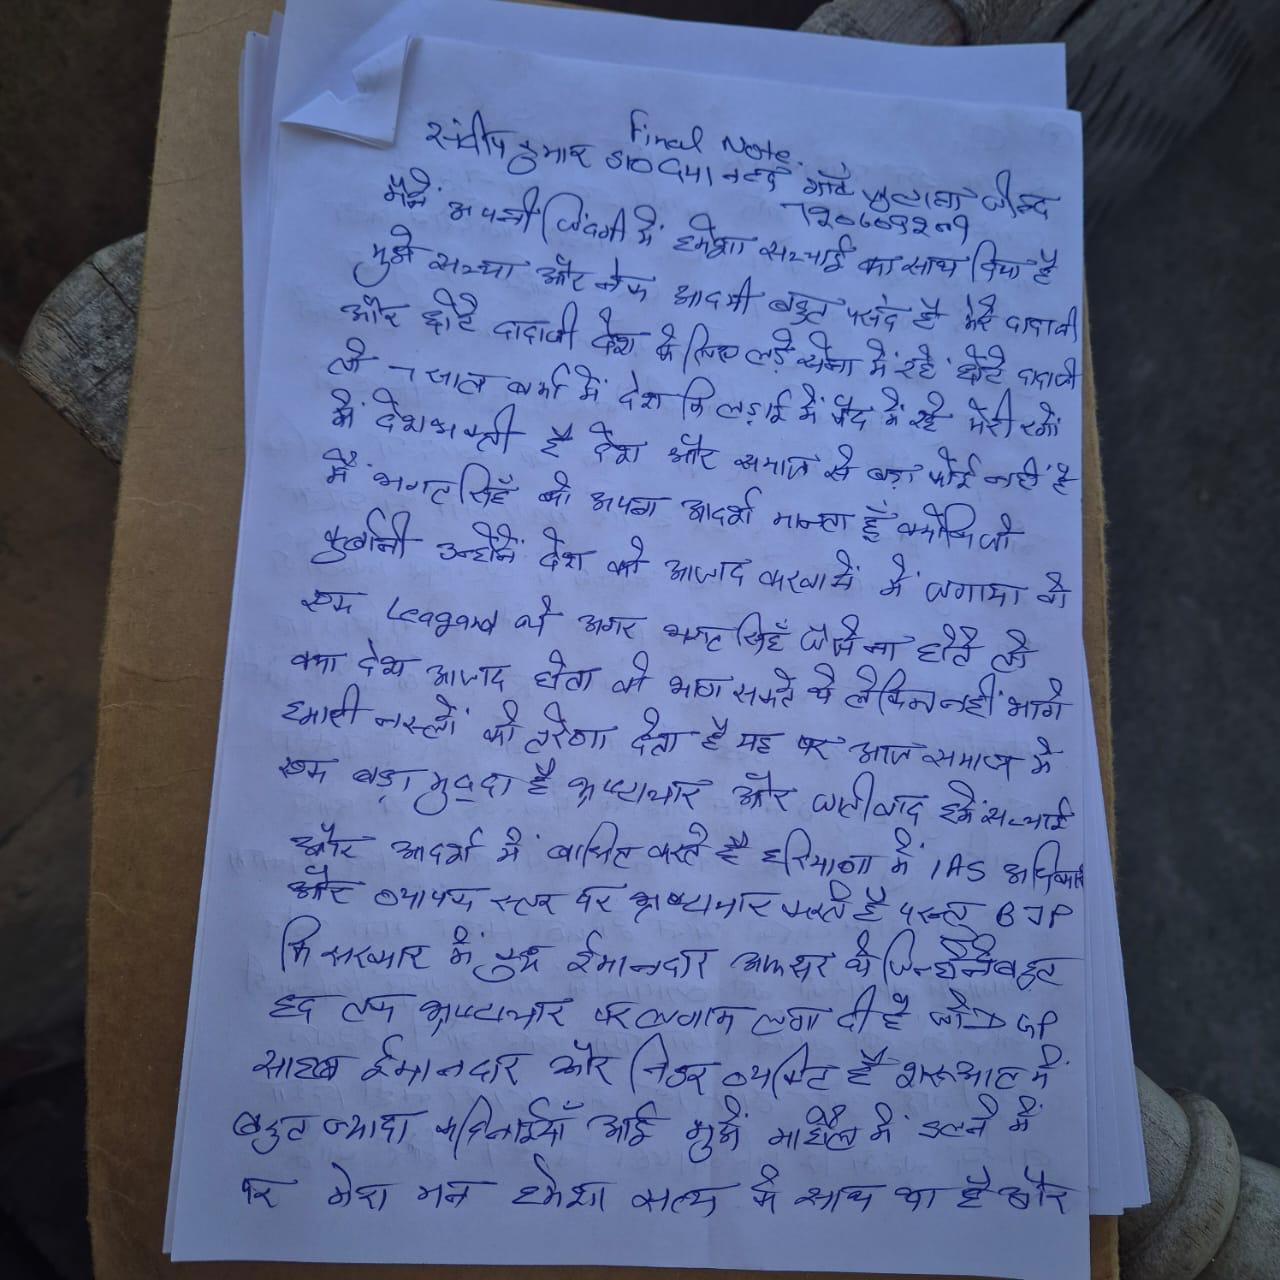 Final Note.
संदीप कुमार S/O दयानन्द गांव जुलाना जीन्द
मैंने अपनी जिंदगी में हमेशा सच्चाई का साथ दिया है
मुझे सच्चा और नेक आदमी बहुत पसंद है मेरे दादाजी
और छोटे दादाजी देश के लिए लड़े सेना में रहे छोटे दादाजी
तो 7 साल बर्मा में देश कि लड़ाई में कैद में रहे मेरी रगों
में देशभक्ती है देश और समाज से बड़ा कोई नहीं है
मैं भगत सिहँ को अपना आदर्श मानता हूँ क्योंकि जो
कुर्बानी उन्होंने देश को आजाद करवाने में लगाया वो
एक Leagand थे अगर भगत सिहँ जैसे ना होते तो
क्या देश आजाद होता वो भाग सकते थे लेकिन नहीं भागे
हमारी नस्लों को प्रेरणा देता है यह पर आज समाज में
एक बड़ा मुद्दा है भ्रष्टाचार और जातीवाद हमें सच्चाई
और आदर्श में बाधित करते है हरियाणा में IAS अधिकारी
और व्यापक स्तर पर भ्रष्टाचार करते है परन्तु BJP
कि सरकार में कुछ ईमानदार अफसर थे जिन्होंने बहुत
हद तक भ्रष्टाचार पर लगाम लगा दी है जो DGP
साहब ईमानदार और निडर व्यक्ति है शुरूआत में
बहुत ज्यादा कठिनाईयाँ आई मुझे माहौल में ढलने में
पर मेरा मन हमेशा सत्य के साथ था है और